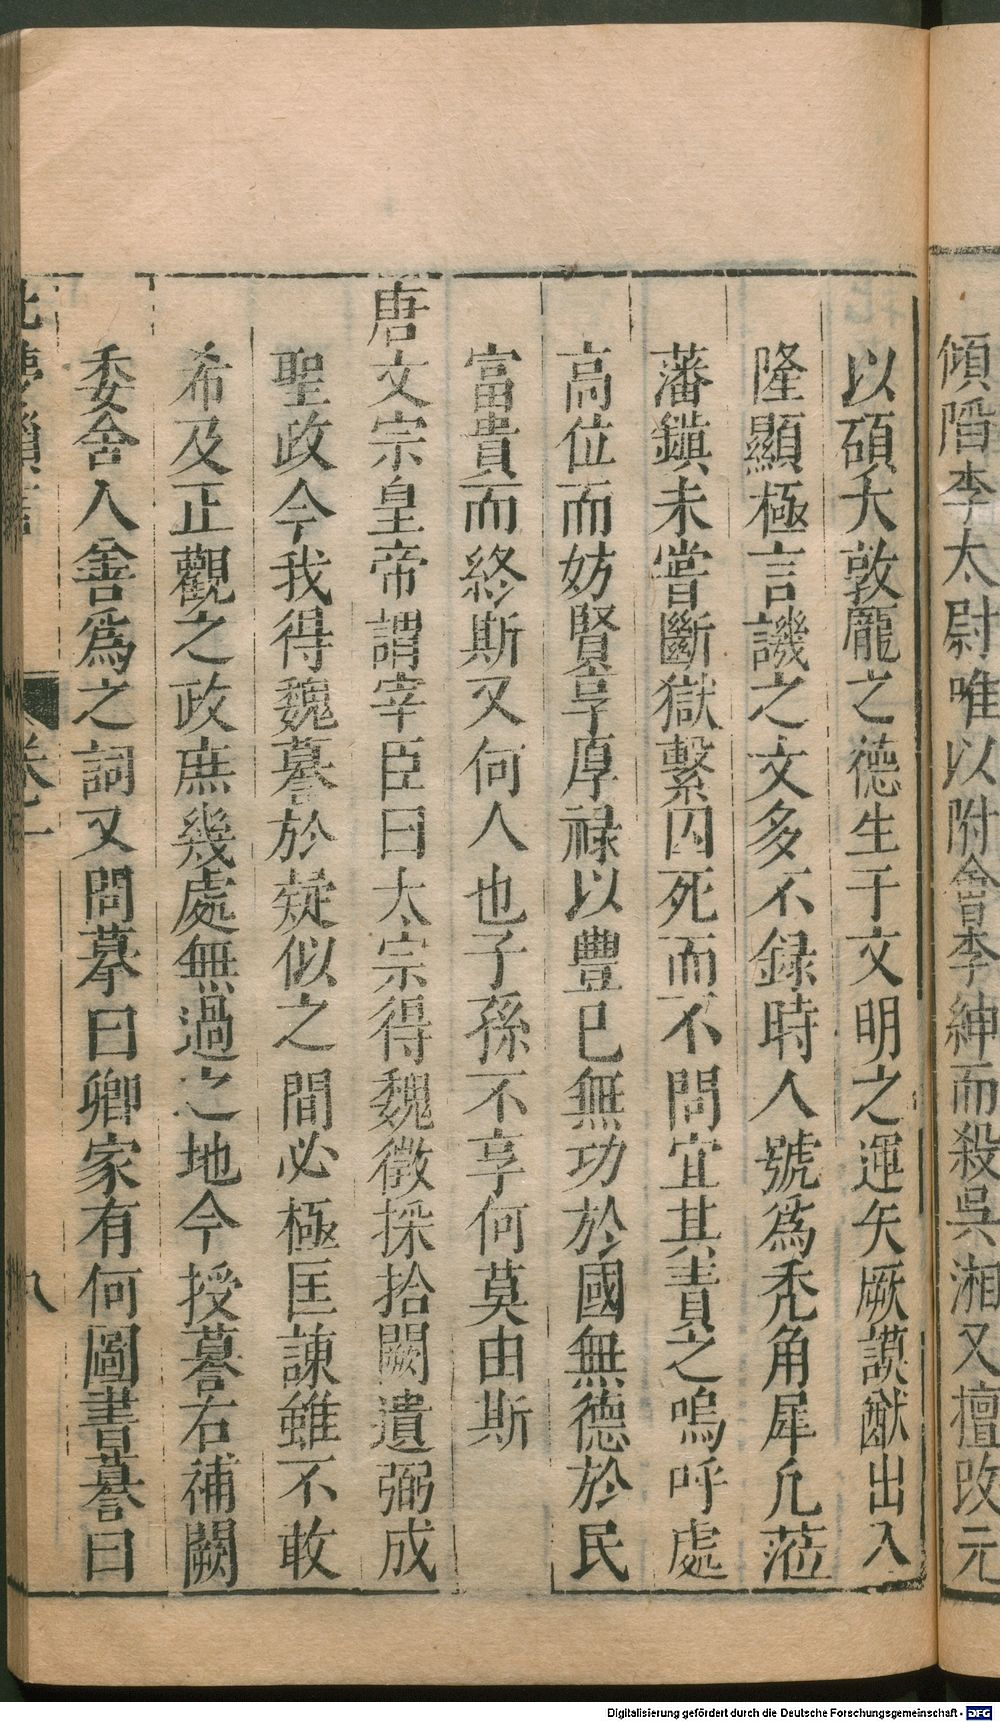 傾陷李太尉唯以附會李紳而殺吳湘又擅改元
以碩大敦龎之德生于文明之運矢厥謨猷出入
隆顯極言譏之文多不録時人號爲禿角犀凢蒞
藩鎮未嘗斷獄繫囚死而不問宜其責之嗚呼處
高位而妨賢享厚禄以豐已無功於國無德於民
富貴而終斯又何人也子孫不享何莫由斯
唐文宗皇帝謂宰臣曰太宗得魏徵採拾闕遺弼成
聖政今我得魏謩於疑似之間必極匡諫雖不敢
希及正觀之政庶幾處無過之地今授謩右補闕
委舍人善爲之詞又問謩曰卿家有何圖書謩曰
北夢瑣言 卷一 八
Digitalisierung gefördert durch die Deutsche Forschungsgemeinschaft - DFG